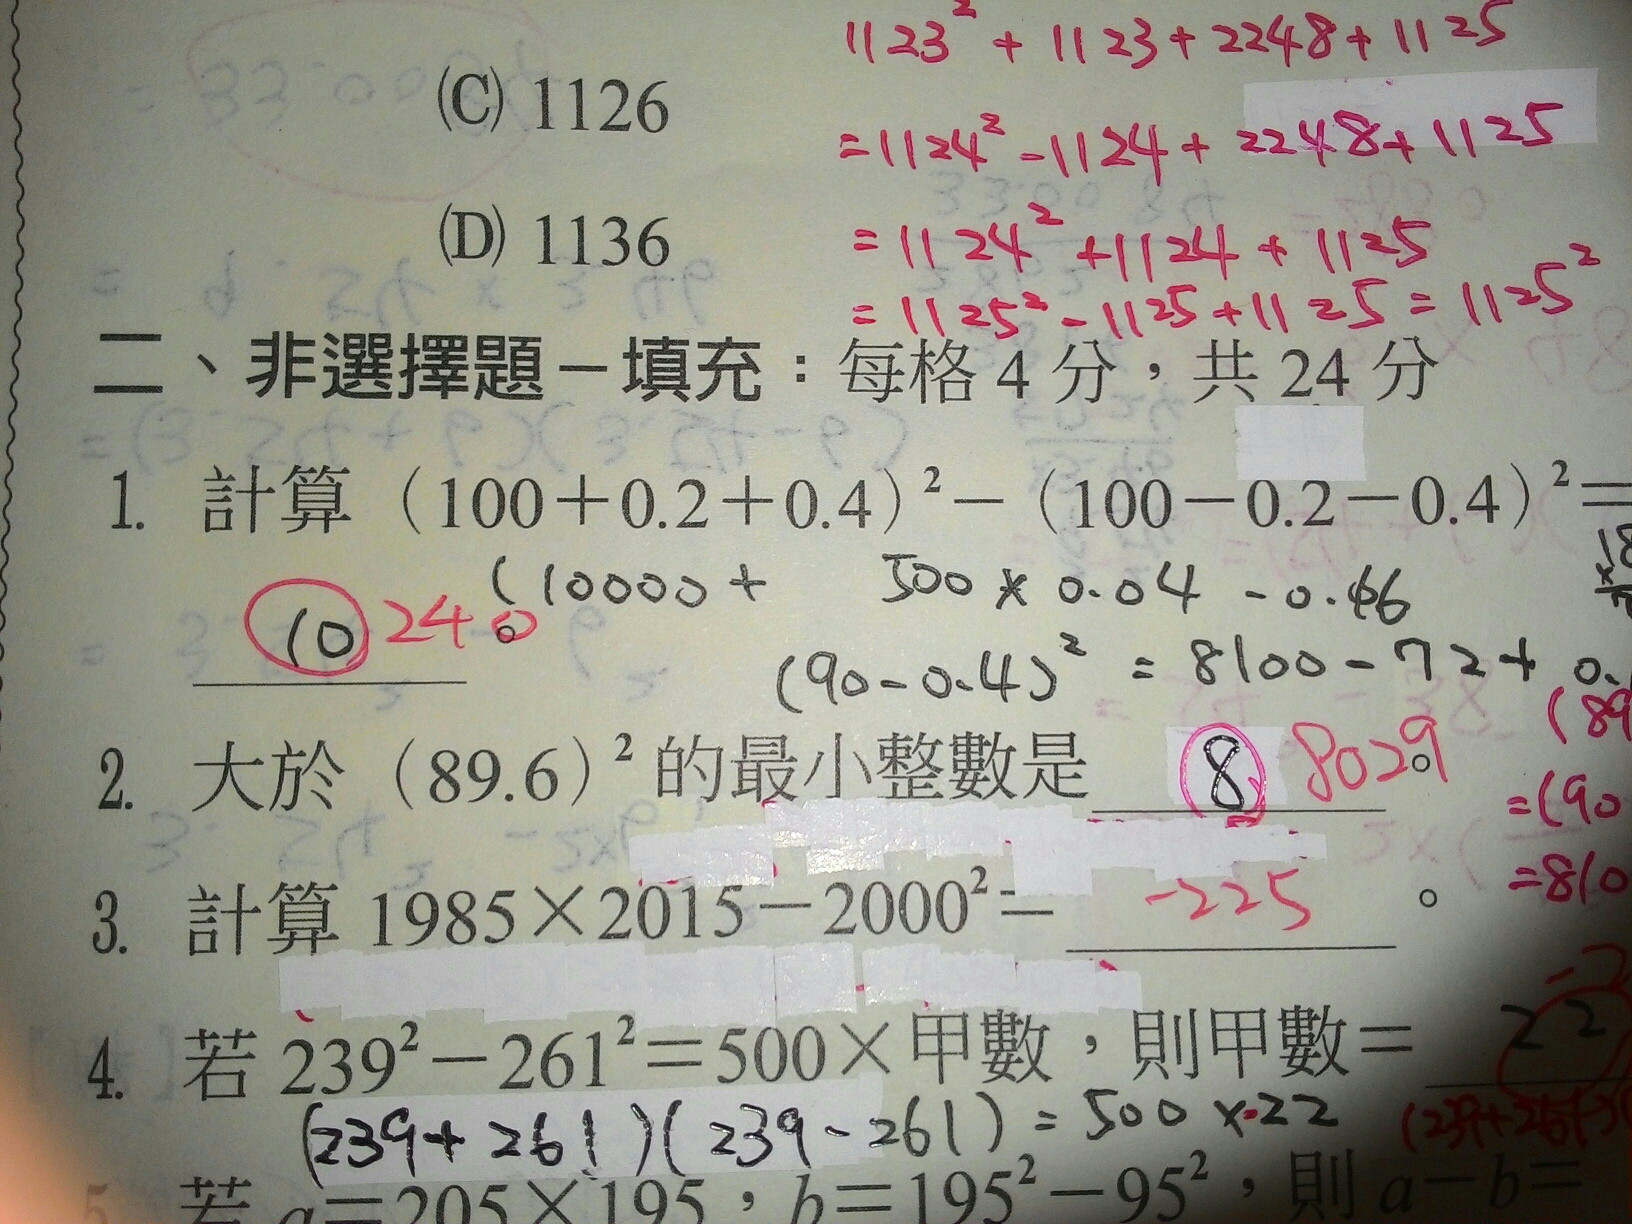 1123² + 1123 + 2248 + 1125
(C) 1126
= 1124² - 1124 + 2248 + 1125
(D) 1136
= 1124² + 1124 + 1125
= 1125² - 1125 + 1125 = 1125²
二、非選擇題－填充：每格 4 分，共 24 分
1. 計算（100＋0.2＋0.4）²－（100－0.2－0.4）²＝
(10000 + 500 × 0.04 - 0.66
10 240 。
(90-0.4)² = 8100 - 72 + 0.
(89
2. 大於（89.6）²的最小整數是 8 8029 。
=(90
=810
3. 計算 1985×2015－2000²＝ -225 。
4. 若 239²－261²＝500×甲數，則甲數＝ 22
(239+261)(239-261) = 500 × -22
5. 若 a＝205×195，b＝195²－95²，則 a－b＝